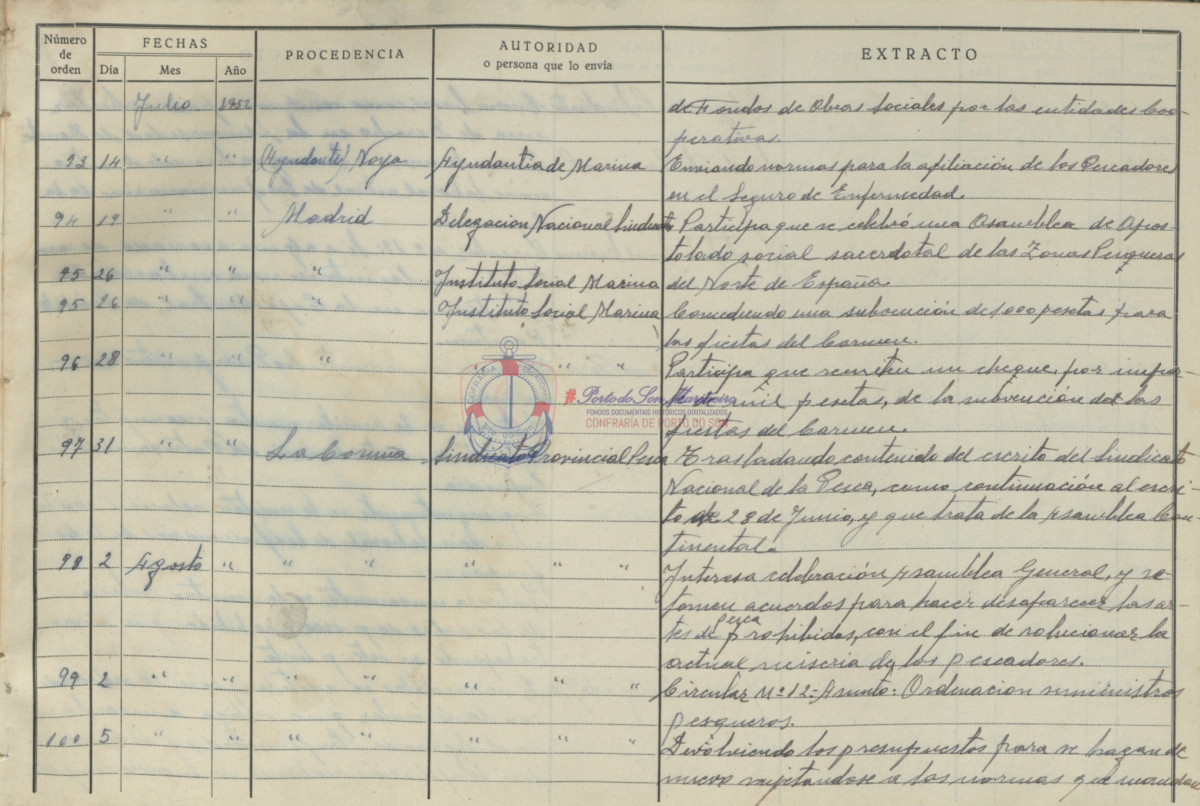 Número de orden FECHAS PROCEDENCIA AUTORIDAD o persona que lo envía EXTRACTO
Día Mes Año
Julio 1952 de Fondos de Obras Sociales por las entidades Coo-
perativas.
93 14 " " (Ayudante) Noya Ayudantia de Marina Enviando normas para la afiliación de los Pescadores
en el Seguro de Enfermedad.
94 19 " " Madrid Delegacion Nacional Sindicato Participa que se celebró una Asamblea de Apos-
tolado social sacerdotal de las Zonas Pesqueras
95 26 " " " Instituto Social Marina del Norte de España
95 26 " " " Instituto Social Marina Concediendo una subvención de 1,000 pesetas para
las fiestas del Carmen.
96 28 " " " " " Participa que remiten un cheque, por impor-
mil pesetas, de la subvención de las
fiestas del Carmen.
#Porto do Son Mariñeiro
FONDOS DOCUMENTAIS HISTÓRICOS DIGITALIZADOS
CONFRARÍA DE PORTO DO SON
97 31 " " La Coruña Sindicato Provincial Pesca Trasladando contenido del escrito del Sindicato
Nacional de la Pesca, como continuación al escri-
to de 28 de Junio, y que trata de la Asamblea Con-
tinental.
98 2 Agosto " " " " " " Interesa celebración Asamblea General, y se
tomen acuerdos para hacer desaparecer las ar-
tes de Pesca prohibidas, con el fin de solucionar la
actual miseria de los pescadores.
99 2 " " " " " " " Circular Nº 12 - Asunto: Ordenacion suministros
pesqueros.
100 5 " " " " " " " Devolviendo los presupuestos para se hagan de
nuevo sujetandose a las normas que mandan